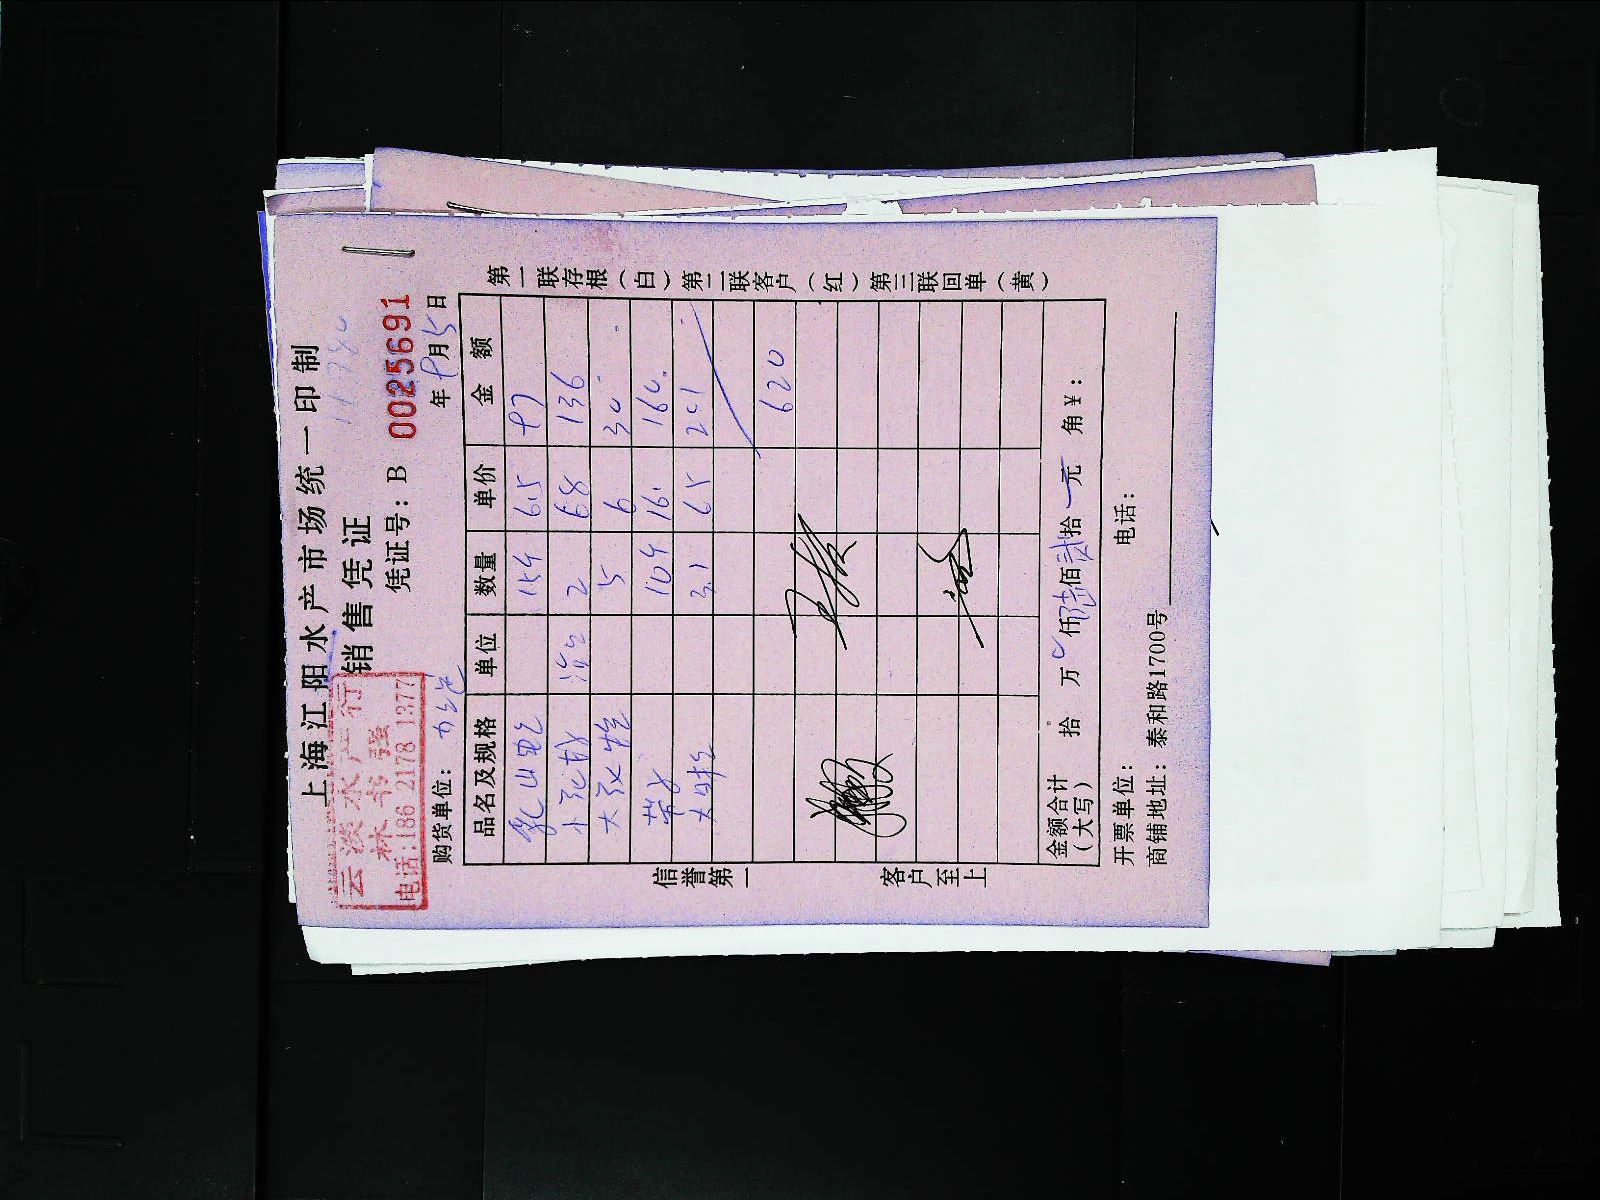 上海江阳水产市场统一印制
销售凭证
云淡水产行
林书强
电话:186 2178 1377
凭证号：B 0025691
购货单位：
年 9月5日
品名及规格 单位 数量 单价 金额
6.5 97
小 2 68 136
大 5 6 30
16. 160.
大 3.1 65 201
620
金额合计（大写） 拾 万 仟 佰 拾 元 角 ￥：
开票单位： 电话：
商铺地址：泰和路1700号
信誉第一 客户至上
第一联存根（白）第二联客户（红）第三联回单（黄）